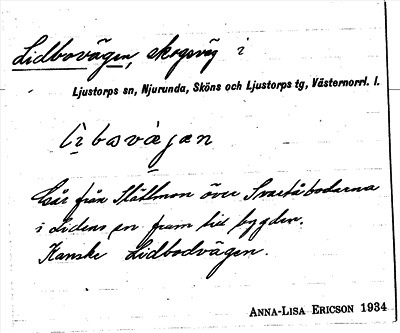 Lidbovägen, skogsväg i
Ljustorps sn, Njurunda, Sköns och Ljustorps tg, Västernorrl. l.
lìbovàjan
Går från Slättmon över Svartåbodarna
i Lidens sn fram till bygden.
Kanske Lidbodvägen.
ANNA-LISA ERICSON 1934